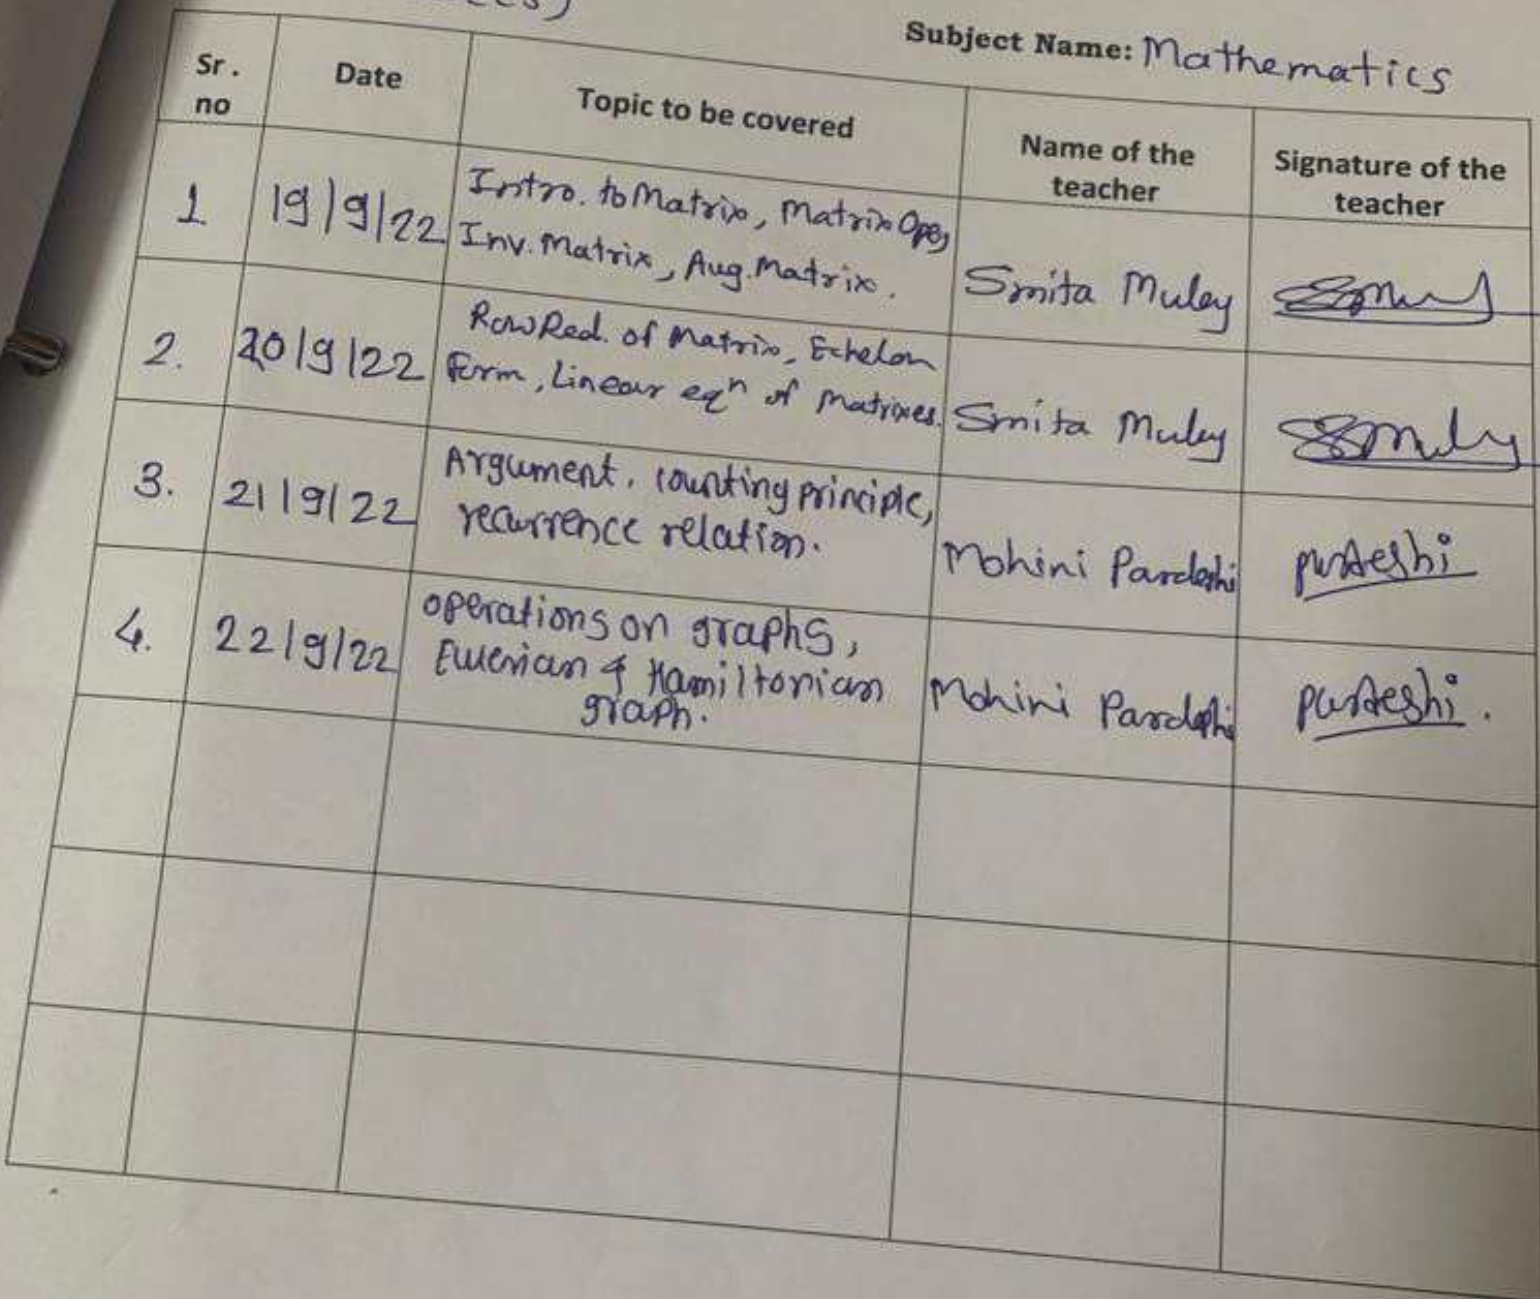 Subject Name: Mathematics
Sr. no Date Topic to be covered Name of the teacher Signature of the teacher
1 19/9/22 Intro. to Matrix, Matrix Ope,
Inv. Matrix, Aug. Matrix. Smita Muley
2. 20/9/22 Row Red. of Matrix, Echelon
Form, Linear eqn of Matrixes. Smita Muley
3. 21/9/22 Argument, counting principle,
recurrence relation. Mohini Pardeshi pardeshi
4. 22/9/22 operations on graphs,
Eulerian & Hamiltonian
graph. Mohini Pardeshi pardeshi.